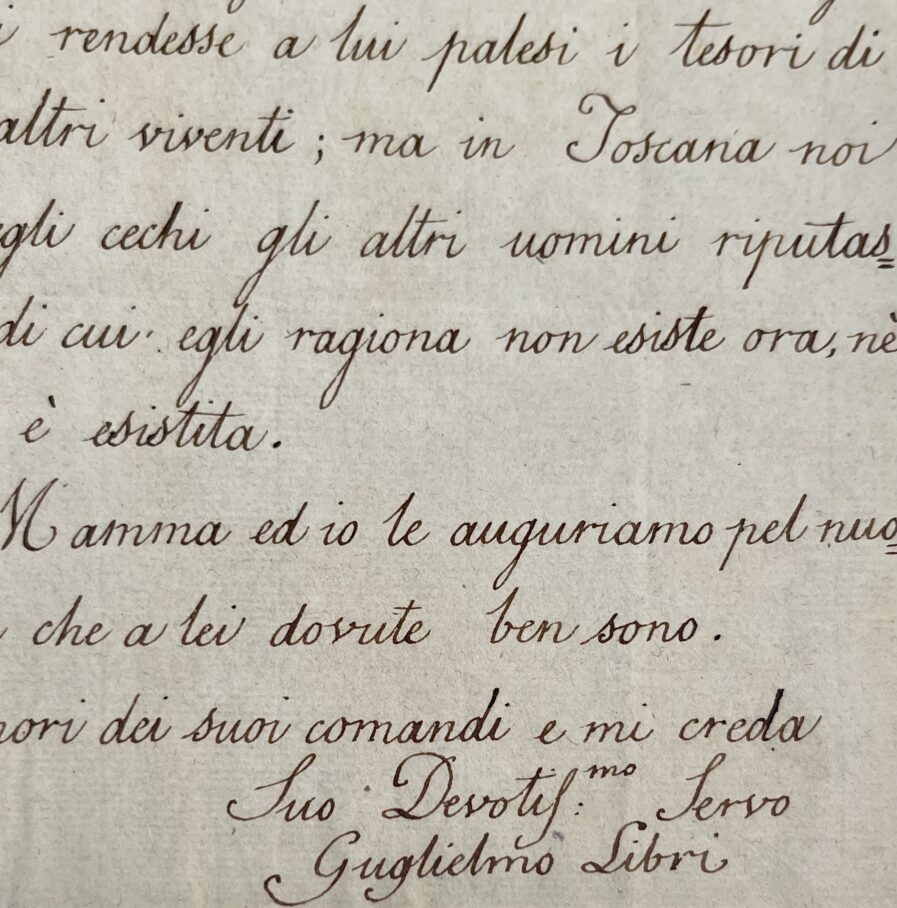 rendesse a lui palesi i tesori di
altri viventi ; ma in Toscana noi
egli cechi gli altri uomini riputas=
di cui egli ragiona non esiste ora, nè
è esistita.
Mamma ed io le auguriamo pel nuo=
che a lei dovute ben sono.
nori dei suoi comandi e mi creda
Suo Devotiss:mo Servo
Guglielmo Libri